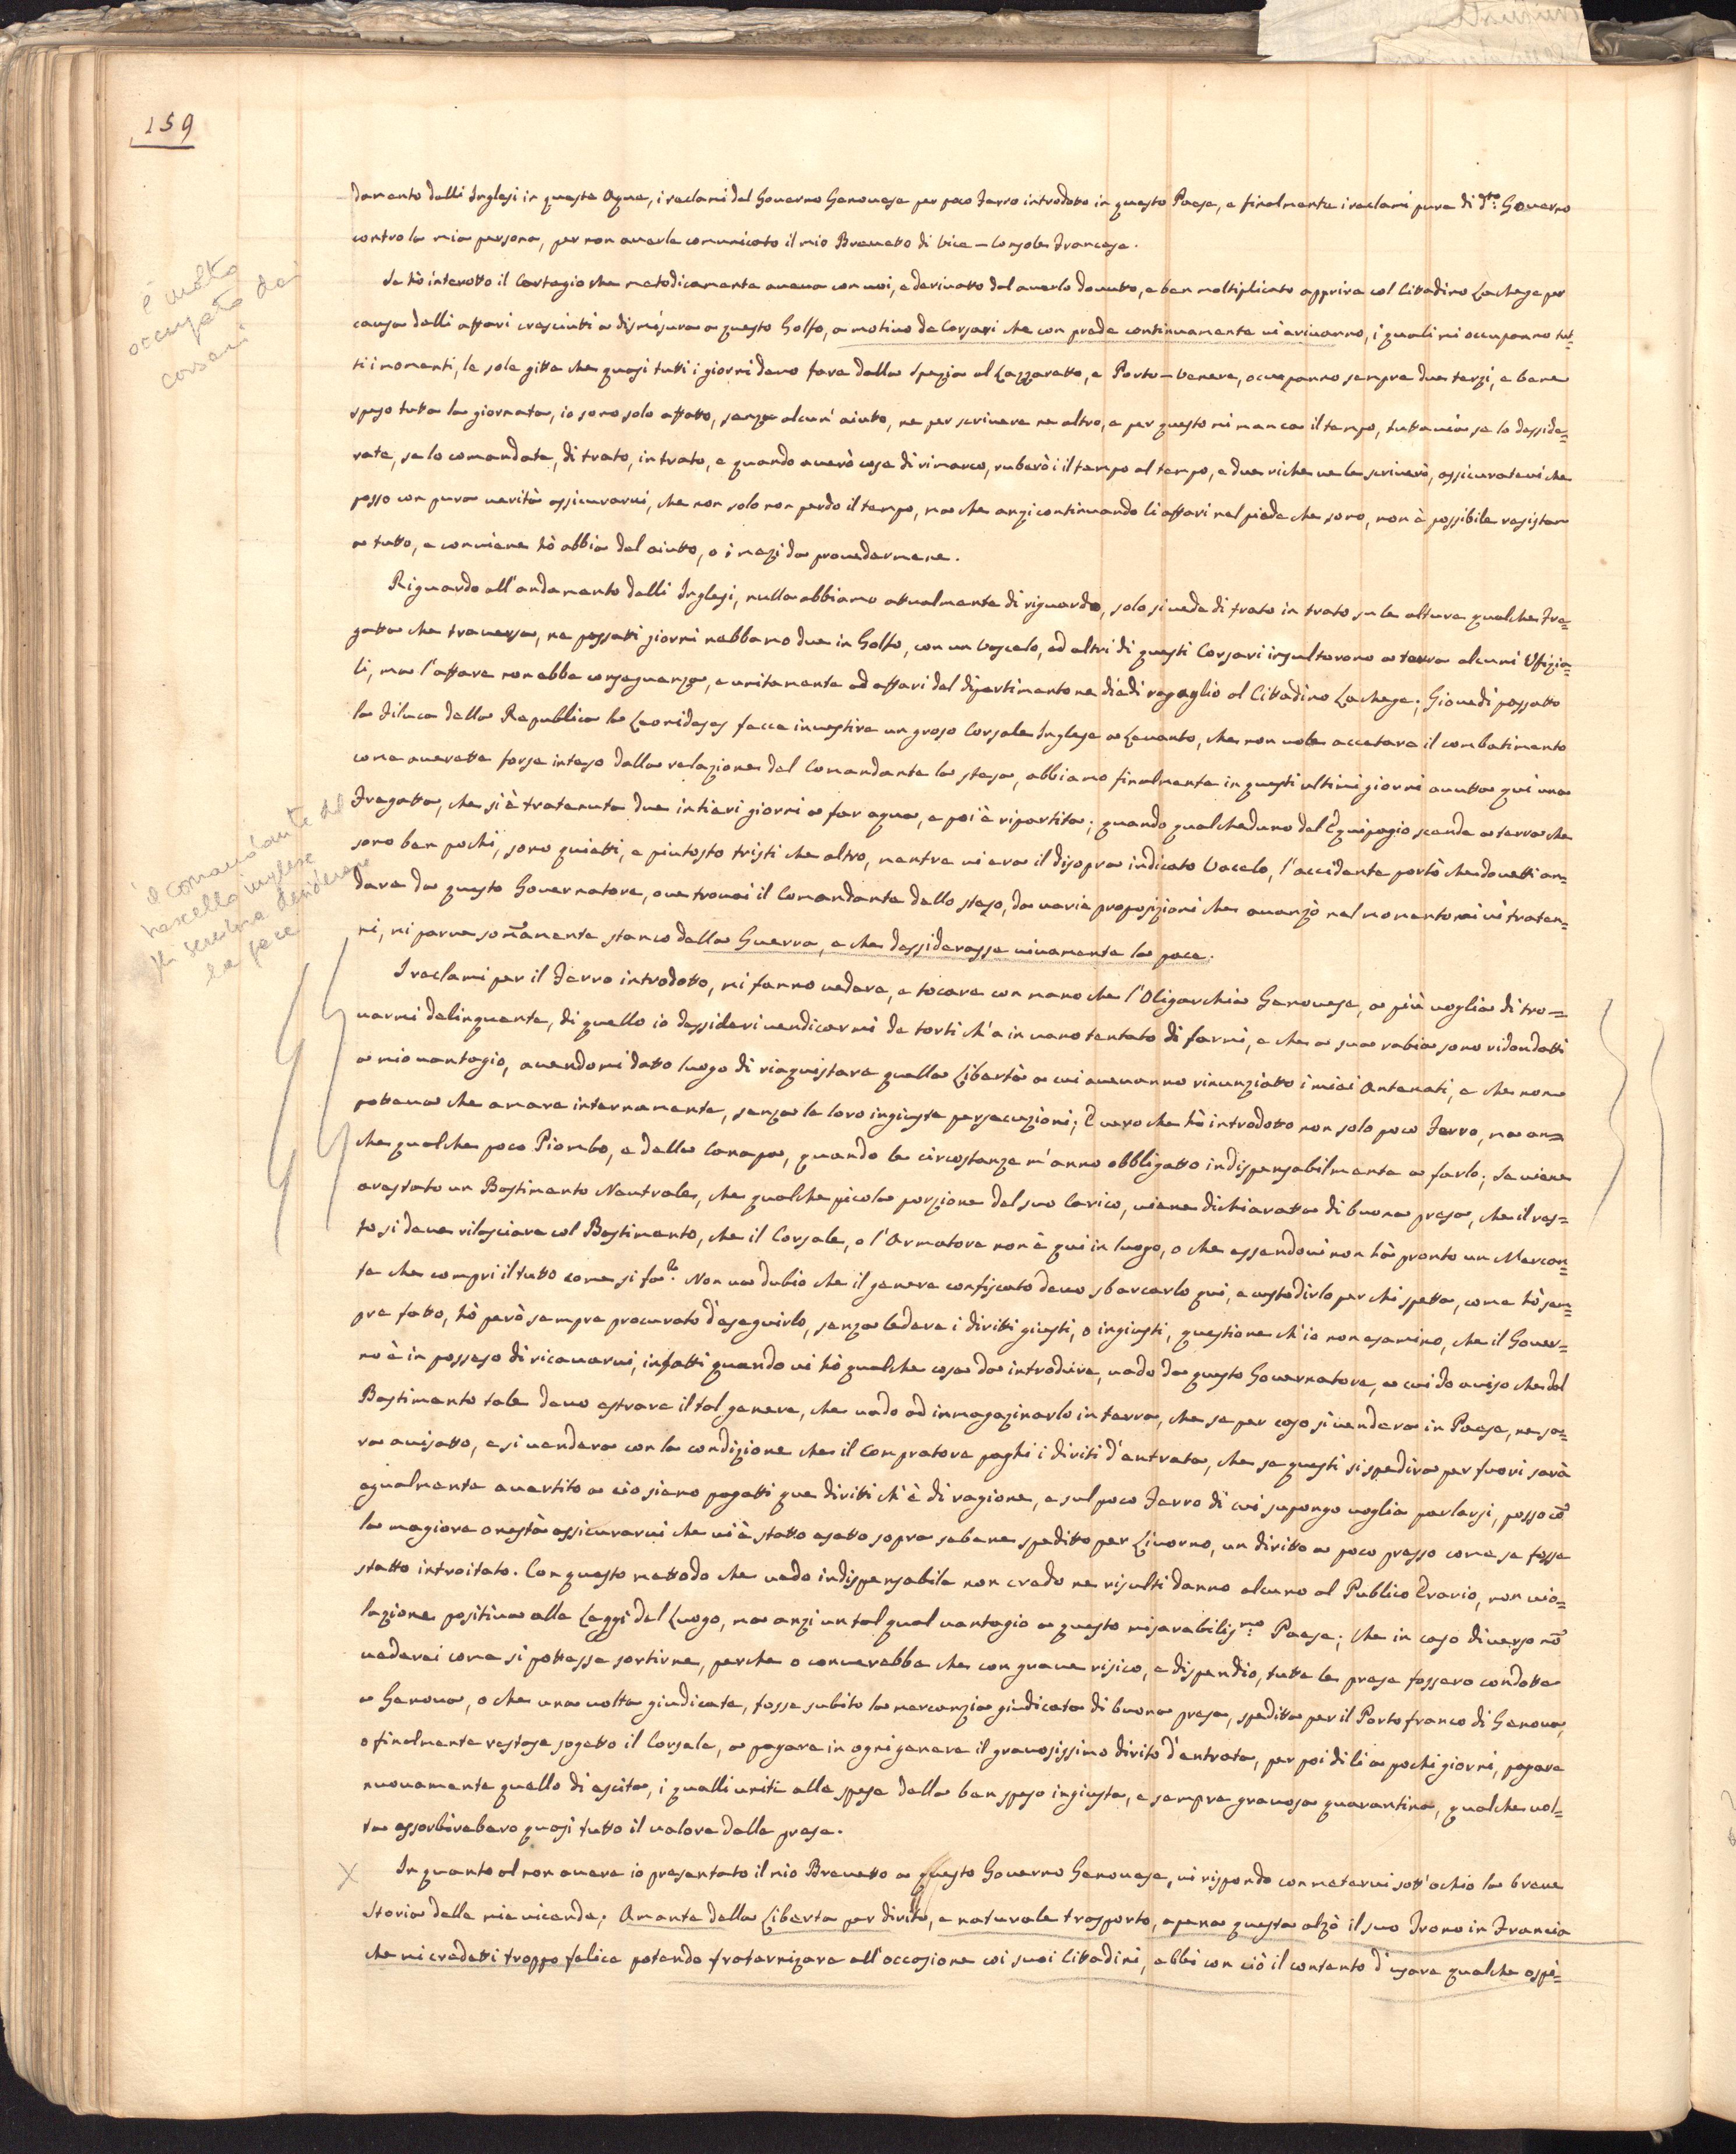 159
damento delli Inglesi in queste Aque, i reclami del Governo Genovese per poco Ferro introdotto in questo Paese, e finalmente i reclami pure di d.to Governo
contro la mia persona, per non averle comunicato il mio Brevetto di Vice-Console Francese.
Se hò interotto il Cartegio che metodicamente aveva con voi, e derivatto dal averlo dovutto, e ben moltiplicato apprire col Cittadino Lachege per
causa delli affari cresciutti a dismisura a questo Golfo, a motivo de Corsari che con prede continuamente vi arivanno, i quali mi occupanno tut=
ti i momenti, le sole gitte che quasi tutti i giorni devo fare dalla Spezia al Lazzaretto, e Porto-Venere, ocupanno sempre due terzi, e bene
speso tutta la giornata, io sono solo affatto, senza alcun' aiutto, ne per scrivere ne altro, e per questo mi manca il tempo, tuttavia se lo desside=
rate, se lo comandate, di trato, in trato, e quando averò cose di rimarco, ruberò i il tempo al tempo, e due riche ve le scriverò, assicuratevi che
posso con pura verità assicurarvi, che non solo non perdo il tempo, ma che anzi continuando li affari nel piede che sono, non è possibile resistere
a tutto, e conviene hò abbia del aiutto, o i mezi da provedermene.
Riguardo all'andamento delli Inglesi, nulla abbiamo attualmente di riguardo, solo si vede di trato in trato su le alture qualche Fre=
gatta che traversa, ne passati giorni nebbamo due in Golfo, con un Vascelo, ed altri di questi Corsari insultorono a terra alcuni Uffizia=
li, ma l'affare non ebbe conseguenza, e unitamente ad affari del dipartimento ne diedi ragaglio al Cittadino Lachege; Giovedi passatto
la Filuca della Republica la Leonidases fecce investire un groso Corsale Inglese a Levanto, che non vole accetare il combatimento
come averette forse inteso dalla relazione del Comandante la stesa, abbiamo finalmente in questi ultimi giorni avutto qui una
Fregatta, che si è tratenuta due intieri giorni a far aqua, e poi è ripartita; quando qualcheduno del Equipagio scende a terra che
sono ben pochi, sono quietti, e piutosto tristi che altro, mentre vi era il disopra indicato Vacelo, l'accidente portò che dovetti an=
dare da questo Governatore, ove trovai il Comandante dello steso, da varie proposizioni che avanzò nel momento mi vi traten=
ni, mi parve somamente stanco della Guerra, e che dessiderasse vivamente la pace.
I reclami per il Ferro introdotto, mi fanno vedere, e tocare con mano che l'Oligarchia Genovese, a più voglia di tro=
varmi delinquente, di quello io dessideri vendicarmi de torti ch'a in vano tentato di farmi, e che a sua rabia sono ridondatti
a mio vantagio, avendomi datto luogo di riaquistare quella Libertà a cui avevanno rinunziatto i miei Antenati, e che non
poteva che amare internamente, senza le loro ingiuste persecuzioni; È vero che hò introdotto non solo poco Ferro, ma an=
che qualche poco Piombo, e della Canapa, quando le circostanze m'anno obbligatto indispensabilmente a farlo; Se viene
arestato un Bastimento Neutrale, che qualche picola porzione del suo Carico, viene dichiaratta di buona presa, che il res=
to si deve rilasciare col Bastimento, che il Corsale, o l'Armatore non è qui in luogo, o che essendovi non hà pronto un Marcan=
te che compri il tutto come si fa? Non va dubio che il genere confiscato devo sbarcarlo qui, e custodirlo per chi spetta, come hò sem=
pre fatto, hò però sempre procurato d'eseguirlo, senza ledere i diritti giusti, o ingiusti, questione ch'io non esamino, che il Gover=
no è in posseso di ricavarvi, infatti quando vi hò qualche cosa da introdure, vado da questo Governatore, a cui do aviso che dal
Bastimento tale devo estrare il tal genere, che vado ad inmagazinarlo in terra, che se per caso si vendera in Paese, ne sa=
ra avisatto, e si vendera con la condizione che il Compratore paghi i diriti d'entrata, che se questi si spedira per fuori sarà
egualmente avertito a ciò siano pagatti que diritti ch'è di ragione, e sul poco Ferro di cui supongo voglia parlarsi, posso cõ
la magiore onestà assicurarvi che vi è statto esatto sopra sabene speditto per Livorno, un diritto a poco presso come se fosse
statto introitato. Con questo mettodo che vedo indispensabile non credo ne risulti danno alcuno al Publico Erario, non vio=
lazione positiva alle Leggi del Luogo, ma anzi un tal qual vantagio a questo miserabilis.mo Paese; Che in caso diverso nõ
vederei come si pottesse sortirne, perche o converebbe che con grave risico, e dispendio, tutte le prese fossero condotte
a Genova, o che una volta giudicate, fosse subito la mercanzia giudicata di buona presa, speditta per il Porto franco di Genova,
o finalmente restase sogetto il Corsale, a pagare in ogni genere il gravosissimo dirito d'entrata, per poi di li a pochi giorni, pagare
nuovamente quello di escita, i qualli uniti alle spese della ben speso ingiusta, e sempre gravosa quarantina, qualche vol=
ta assorbirebero quasi tutto il valore delle prese.
X In quanto al non avere io presentato il mio Brevetto a questo Governo Genovese, vi rispondo con metervi sott'ochio la breve
storia delle mie vicende; Amante della Liberta per diritto, e naturale trasporto, apena questa alzò il suo Trono in Francia
che mi credetti troppo felice potendo fraternizare all'occasione coi suoi Cittadini, ebbi con ciò il contento d'usare qualche ospi=
è molto
occupato dai
corsari
il comandante del
vascello inglese
gli sembra desiderare
la pace